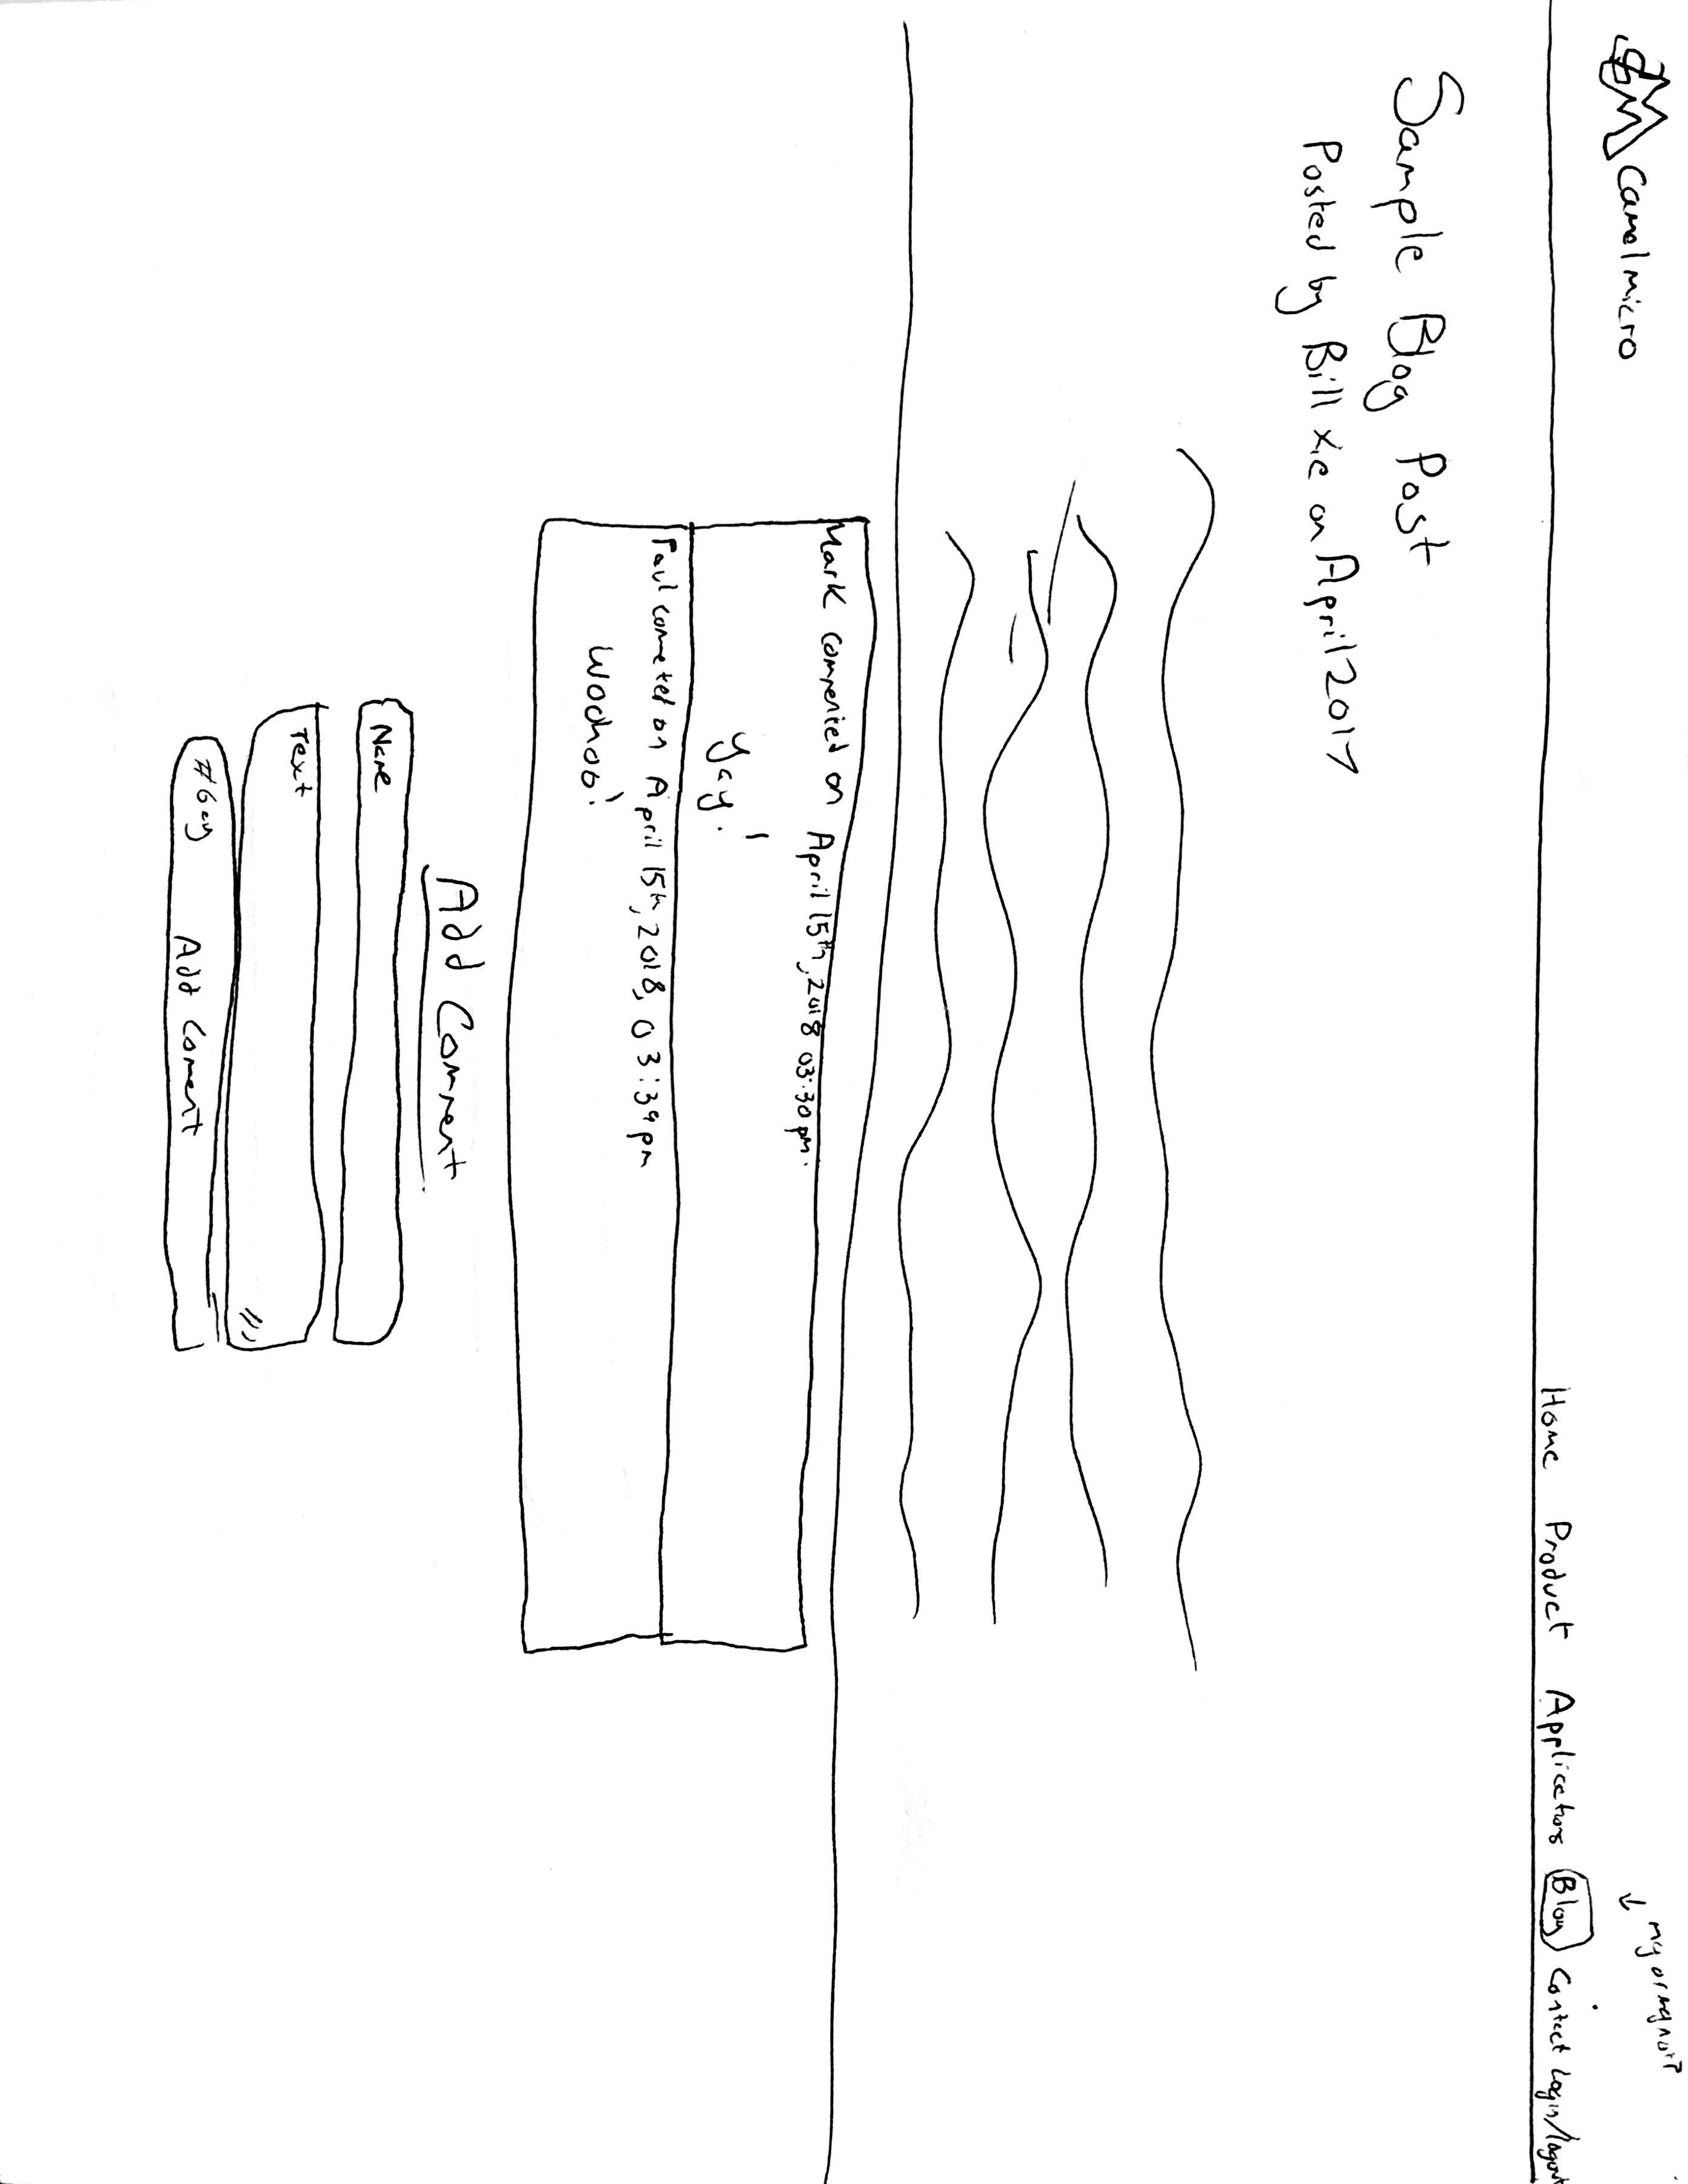 Canalmicro
↓ my or mynot?
Home Product Applications Blog Contact Login/logout
Sample Blog Post
Posted by Bill xie on April 2017
Mark Commented on April 15th, 2018 03:30 pm.
Yay!
Paul commeted on April 15th, 2018, 03:39 pm
Woohoo!
Add Comment
Name
Text
Add Comment